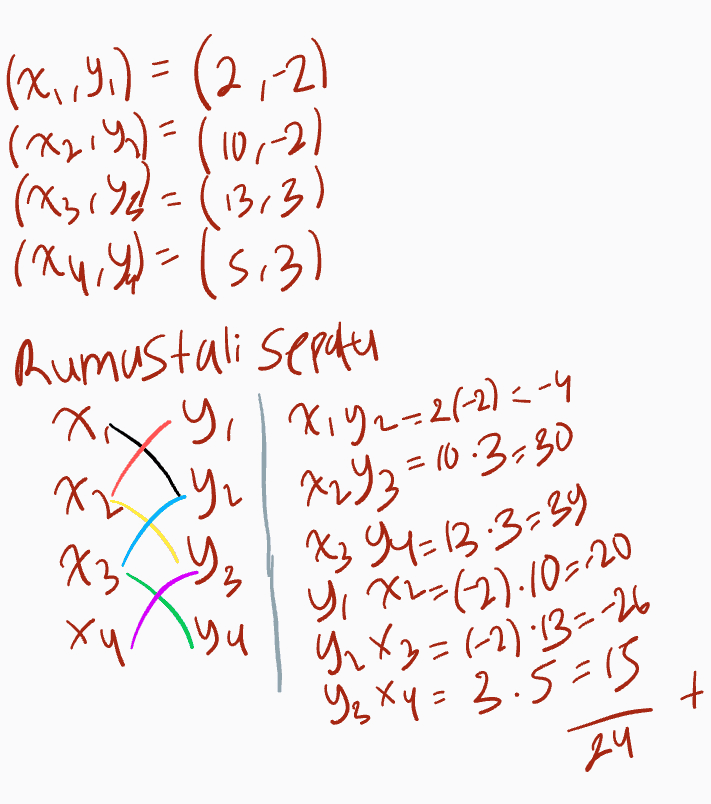 (x₁, y₁) = (2, -2)
(x₂, y₂) = (10, -2)
(x₃, y₃) = (13, 3)
(x₄, y₄) = (5, 3)
Rumus tali sepatu
x₁ y₁
x₂ y₂
x₃ y₃
x₄ y₄
x₁ y₂ = 2(-2) = -4
x₂ y₃ = 10 · 3 = 30
x₃ y₄ = 13 · 3 = 39
y₁ x₂ = (-2) · 10 = -20
y₂ x₃ = (-2) · 13 = -26
y₃ x₄ = 3 · 5 = 15
+
24